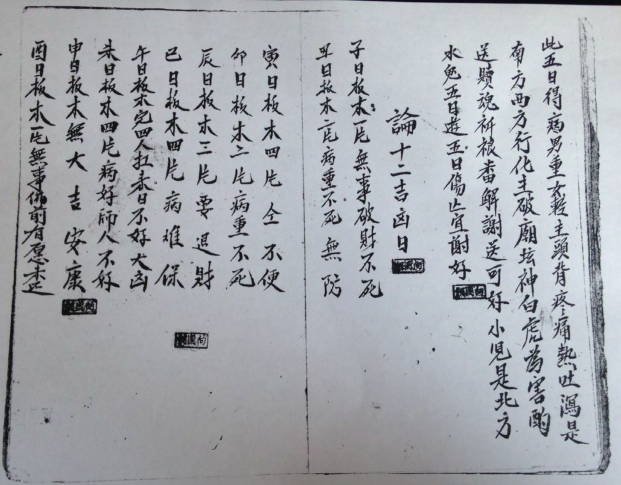 此五日得病男重女輕主頭背疼痛熱吐瀉是
南方西方行化主破廟坛神白虎為害酌
送贖魂祈禳香解謝送可好小児是北方
水鬼五日遊五日傷亡宜謝好
論十二吉凶日
子日板木一片無事破財不死
丑日板木二片病重不死無防
寅日板木四片全不便
卯日板木二片病重不死
辰日板木三片要退財
巳日板木四片病难保
午日板木完四人扛去日不好大凶
未日板木四片病好师人不好
申日板木無大吉安康
酉日板木一片無事佛前有愿未还